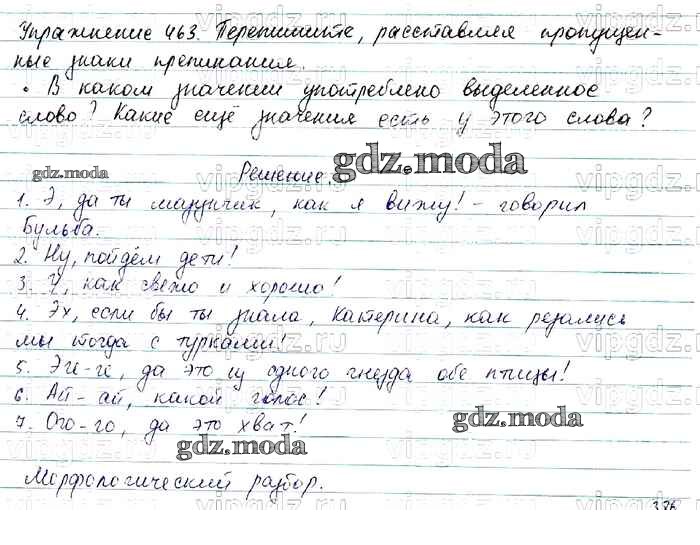 Упражнение 463. Перепишите, расставляя пропущен-
ные знаки препинания.
• В каком значении употреблено выделенное
слово? Какие ещё значения есть у этого слова?
gdz.moda
Решение.
gdz.moda
1. Э, да ты мазунчик, как я вижу! - говорил
Бульба.
2. Ну, пойдём дети!
3. У, как свежо и хорошо!
4. Эх, если бы ты знала, Катерина, как резались
мы тогда с турками!
5. Эге-ге, да это из одного гнезда обе птицы!
6. Ай-ай, какой голос!
7. Ого-го, да это хват!
gdz.moda
gdz.moda
Морфологический разбор.
vipgdz.ru
336